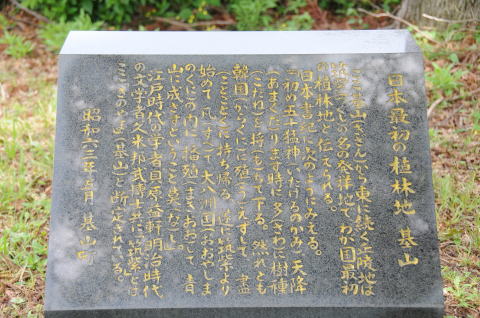 日本最初の植林地 基山
ここ基山(きざん)から東に続く丘陵地は
筑紫(つくし)の名の発祥地で、わが国最初
の植林地と伝えられる。
日本書紀に次のようにみえる。
「初め五十猛神(いたけるのかみ)、天降
(あまくだ)ります時に、多(さわ)に樹種
(こだね)を将(も)ちて下る。然れども
韓国(からくに)に殖(う)えずして、盡
(ことごと)く持ち帰る。遂に筑紫より
始めて、凡(すべ)て大八洲国(おおやしま
のくに)の内に、播殖(まきおお)して、青
山に成さずということ莫(な)し」
江戸時代の学者貝原益軒、明治時代
の文学者久米邦武博士共に、筑紫とは
ここ、きのやま(基山)と断定されている。
昭和六二年三月 基山町